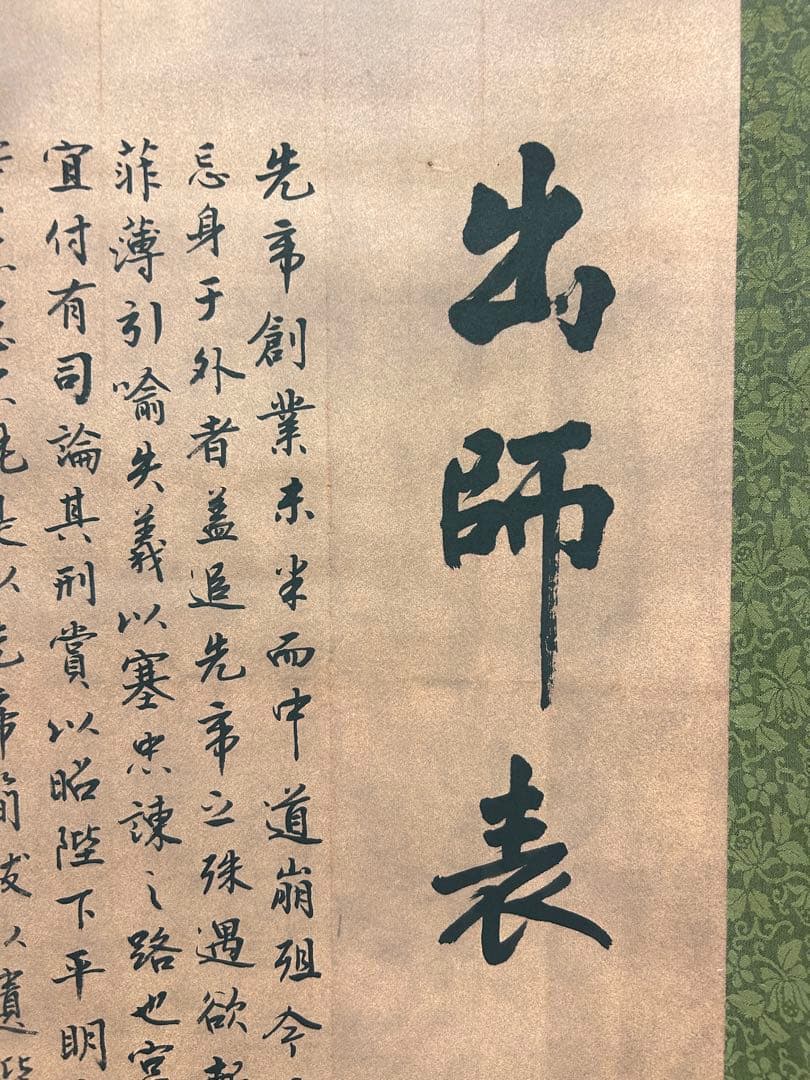 出師表
先帝創業未半而中道崩殂今
忘身于外者蓋追先帝之殊遇欲報
菲薄引喻失義以塞忠諫之路也宮
宜付有司論其刑賞以昭陛下平明
是以先帝簡拔以遺陛